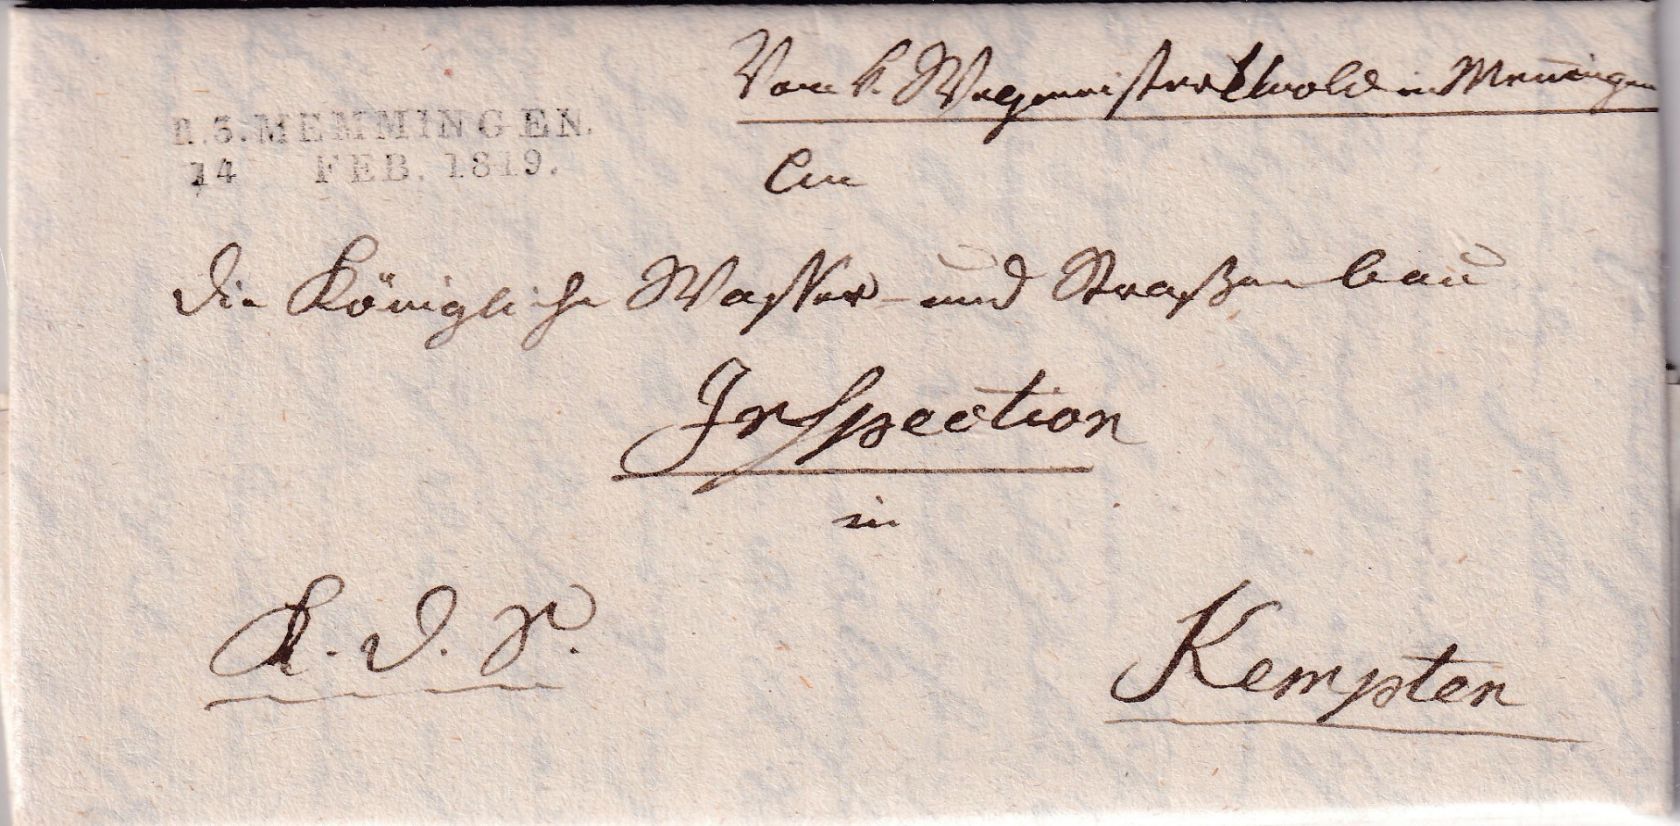 Vom k. Wegmeister in Memingen
R.3.MEMMINGEN.
14 FEB. 1819.
An
die Königliche Wasser- und Straßenbau
Inspection
in
K. D. S.
Kempten